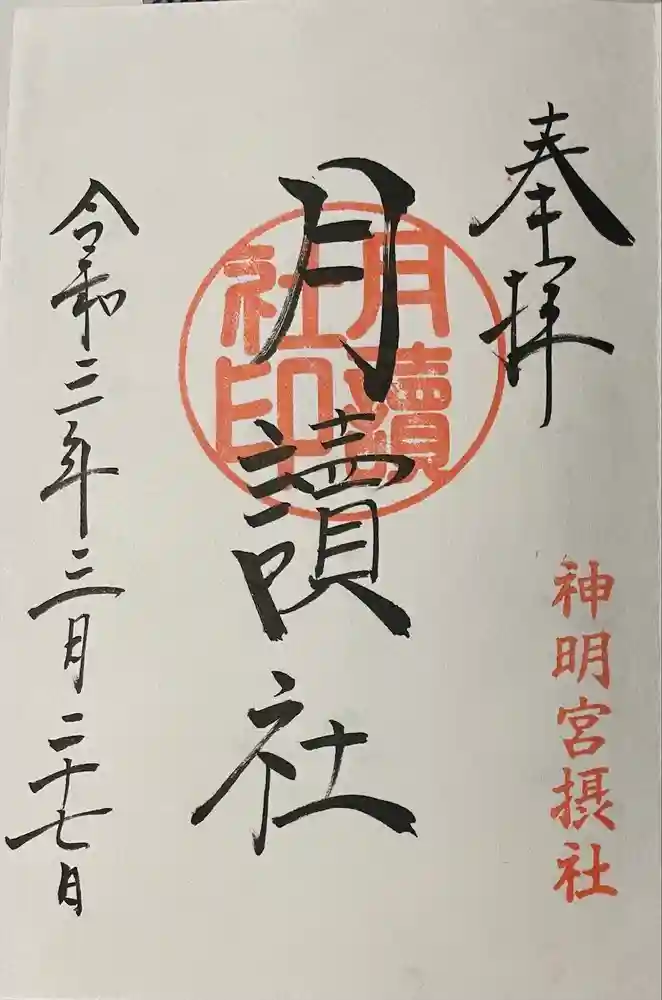 奉拝
神明宮摂社
月讀社
月讀
社印
令和三年三月二十七日